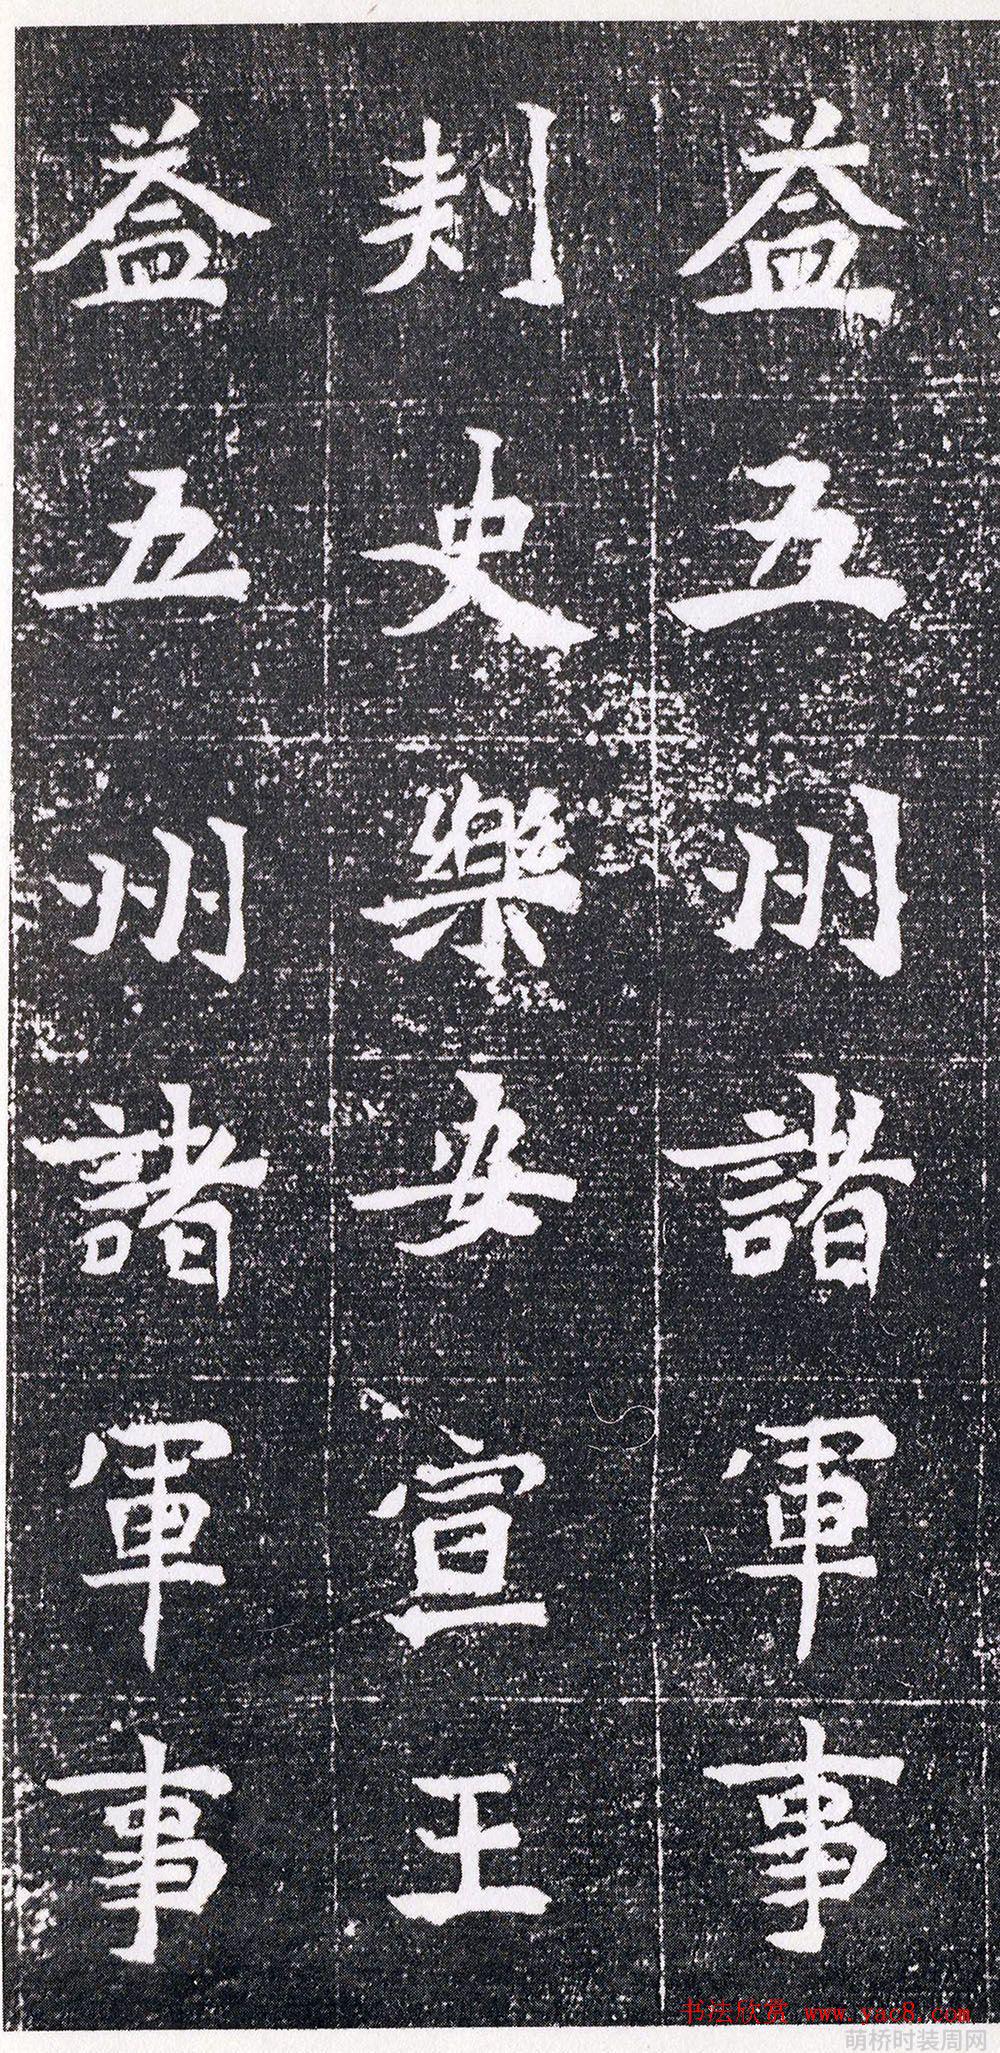 益五州諸軍事
刺史樂安宣王
益五州諸軍事
书法欣赏 www.yac8.com
萌桥时装周网